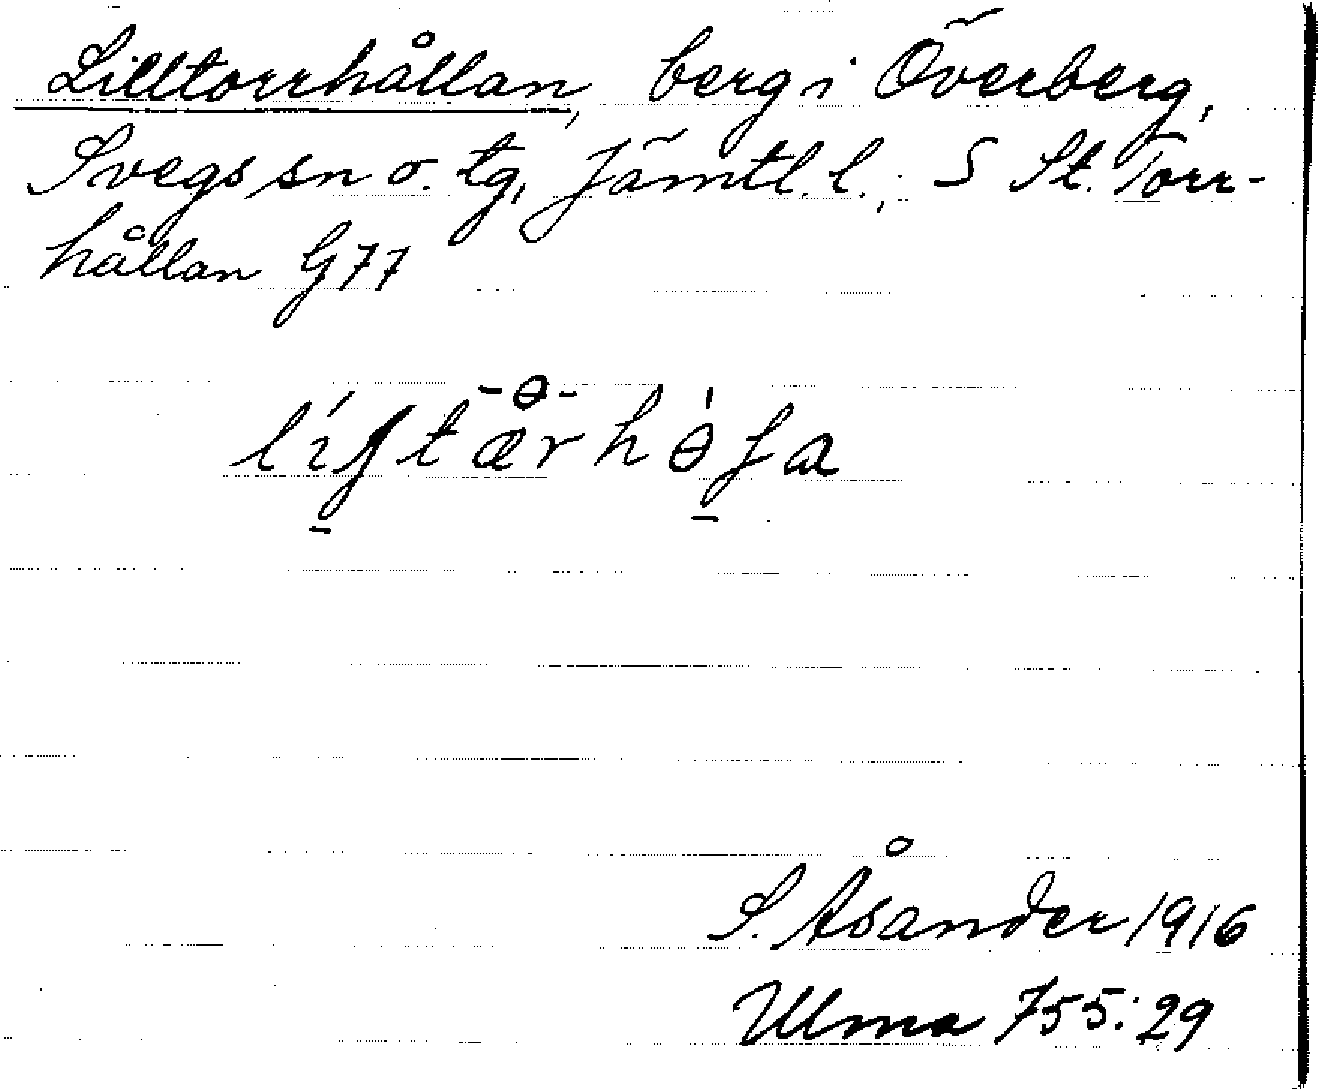 Lilltorrhållan, berg i Överberg,
Svegs sn o. tg, Jämtl. l.; S St. Torr-
hållan G77
S. Åsander 1916
Ulma 755:29